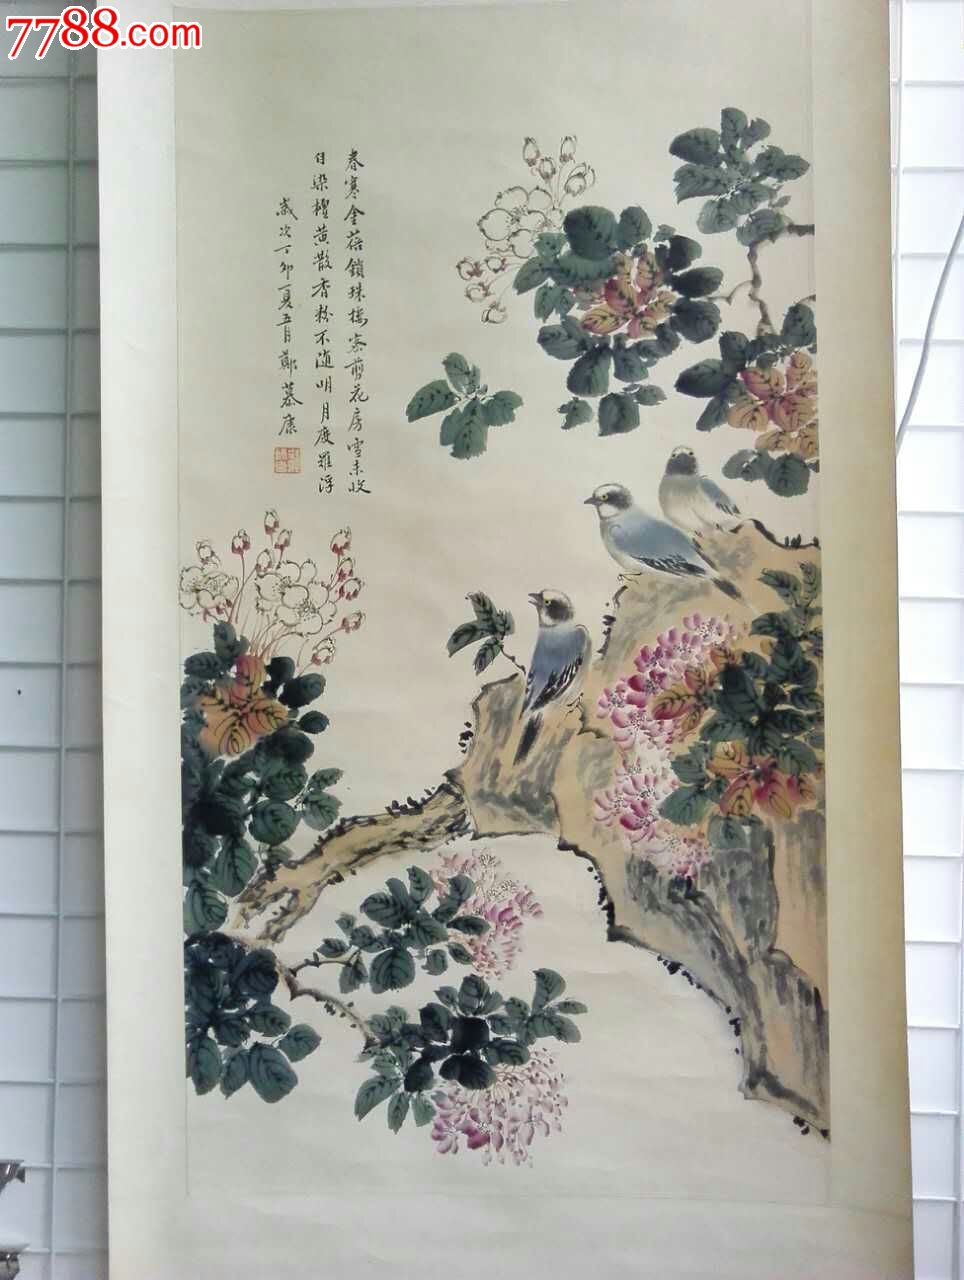 7788.com
春寒金蓓鎖珠樓寒翦花房雪未收
自染檀黃散香粉不随明月度羅浮
歲次丁卯夏五月鄭慕康